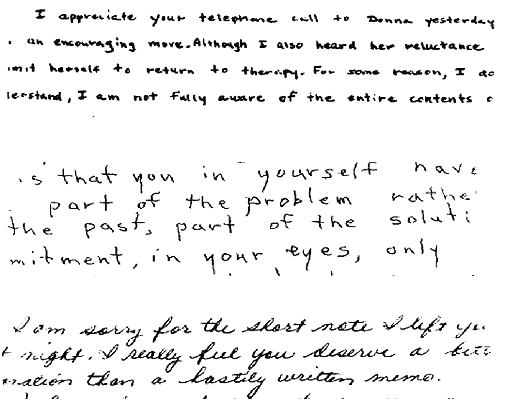 I appreciate your telephone call to Donna yesterday
an encouraging move. Although I also heard her reluctance
mit herself to return to therapy. For some reason, I do
derstand, I am not fully aware of the entire contents o
is that you in yourself have
part of the problem rathe
the past, part of the soluti
mitment, in your eyes, only
I am sorry for the short note I left yo
t night. I really feel you deserve a bett
mation than a hastily written memo.